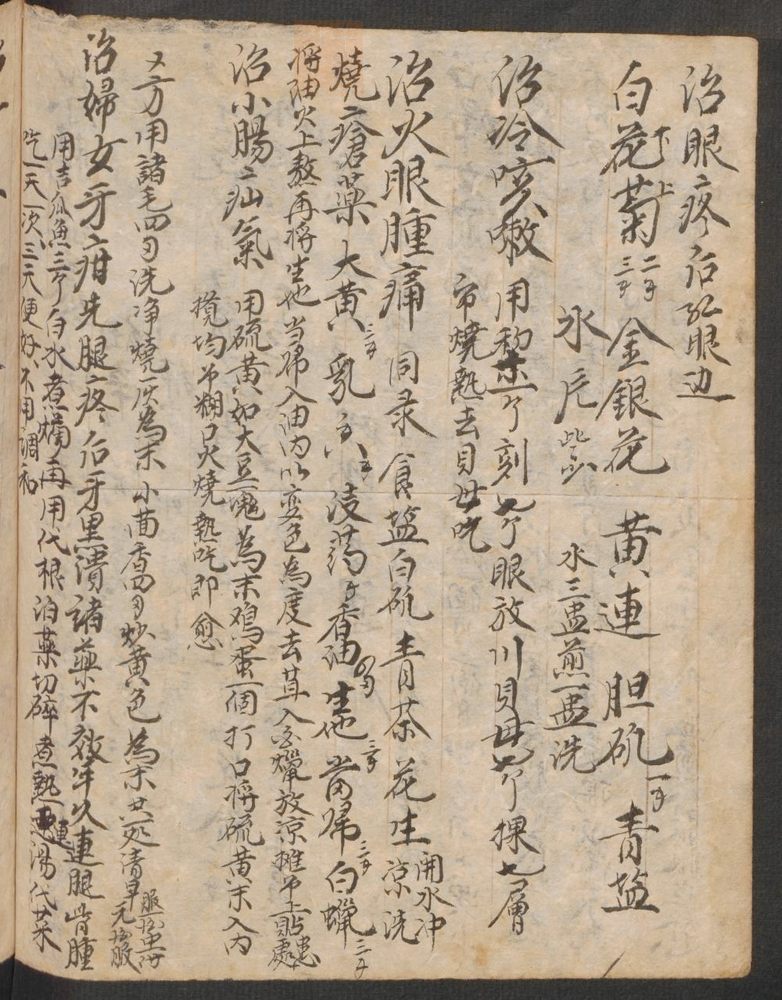 治眼疼后紅眼边
白花菊 二千三千 金銀花 黄連 胆矾一千 青盐
氷片 些少 水三盅煎一盅洗
治冷咳嗽 用秋梨一个刻七个眼放川貝母七个 裸七層
帋燒熟去貝母吃
治火眼腫痛 同录 食盐 白矾 青茶 花生 開水冲涼洗
燒瘡薬 大黄三千 乳香千 没药千 香油四两 生地三千 當归三千 白蠟三千
将油火上熬再将生地當归入油内以变色為度去其入白蠟放凉摊帋上貼患處
治小腸疝氣 用硫黄如大豆一塊為末鸡蛋一個打口将硫黄末入内
搅均帋糊口火燒熟吃即愈
又方用諸毛四两洗净燒灰為末小茴香四两炒黄色為末共处清早元酒服
治婦女牙疳先腿疼后牙黑潰諸薬不效年久連腿皆腫
用吉瓜魚三个白水煮爛再用代根泊薬切碎煮熟連湯代菜
吃一天一次三天便好不用調和